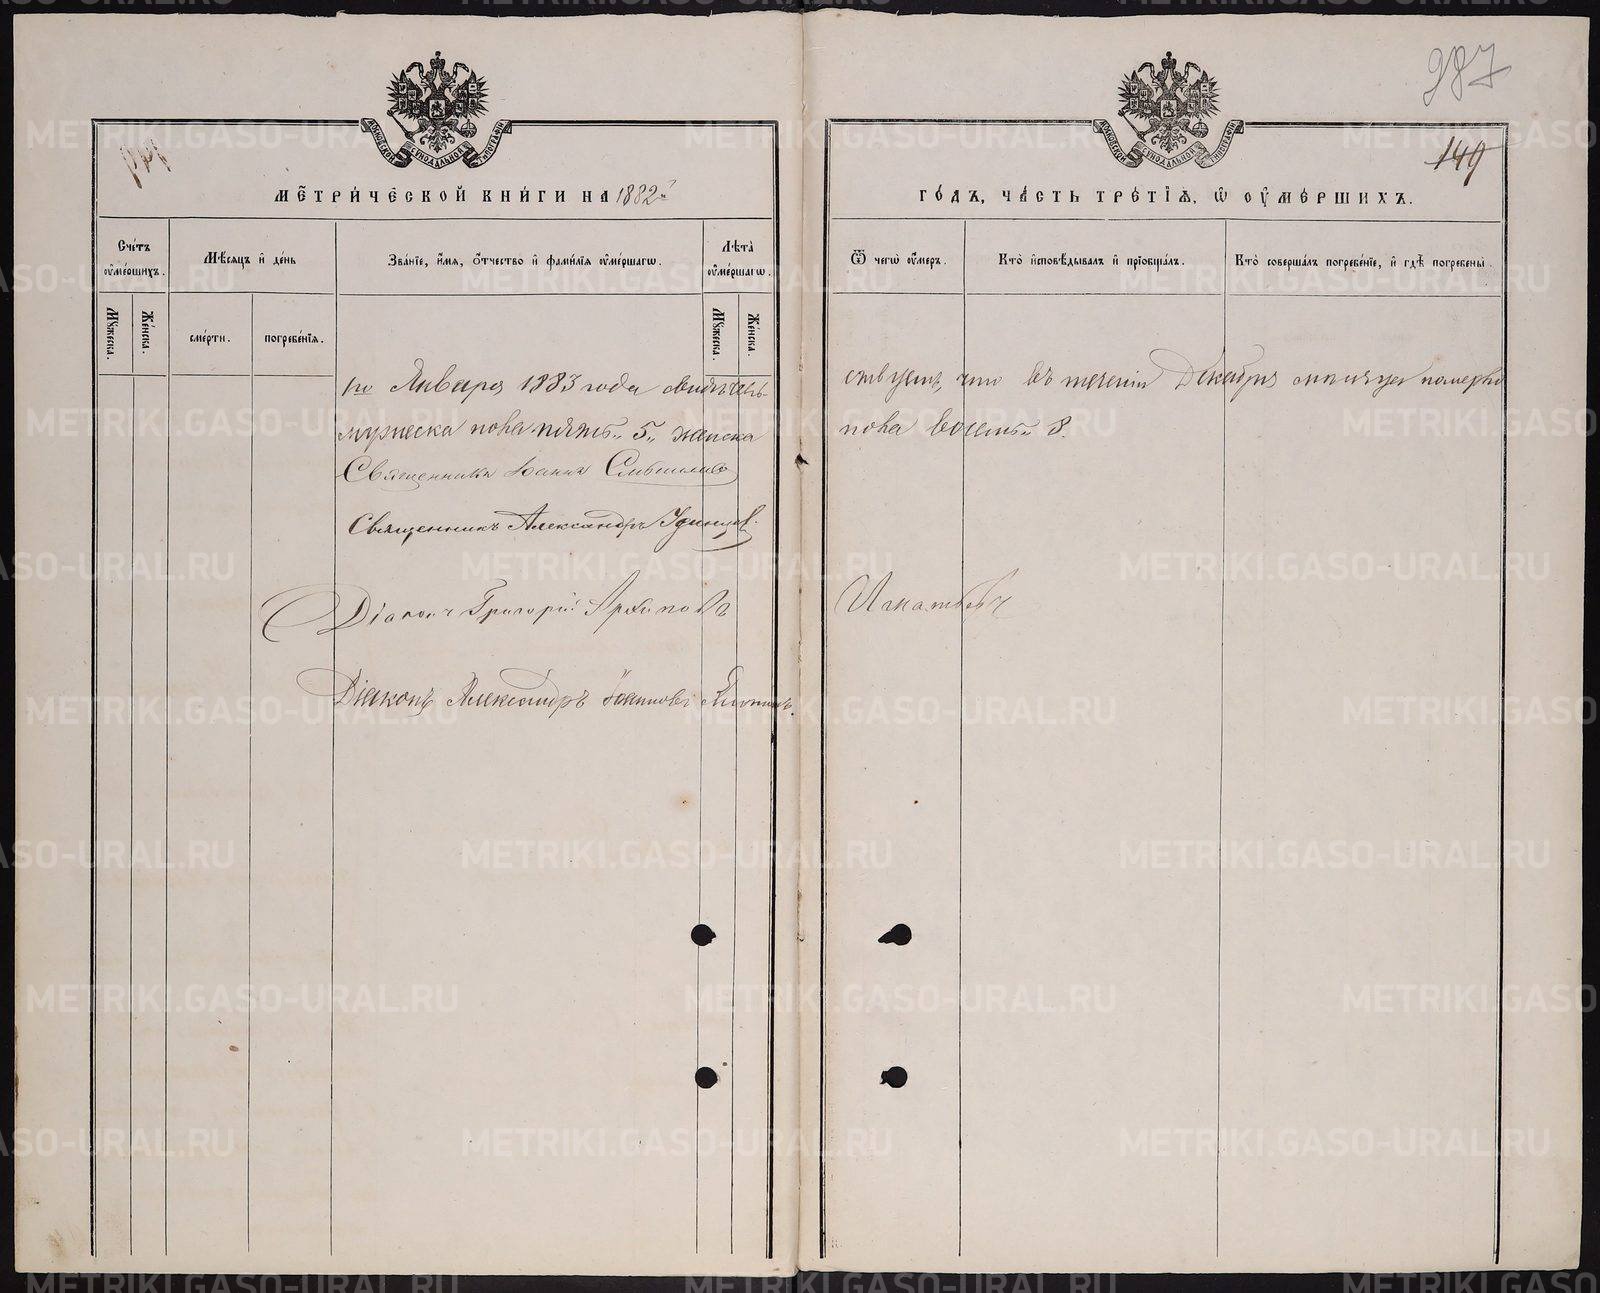 987
149
МОСКОВСКОЙ СѴНОДАЛЬНОЙ ТИПОГРАФІИ
МОСКОВСКОЙ СѴНОДАЛЬНОЙ ТИПОГРАФІИ
МЕТРИЧЕСКОЙ КНИГИ НА 1882й
ГОДЪ, ЧАСТЬ ТРЕТІѦ, Ѡ ОУМЕРШИХЪ.
Счетъ оумершихъ.
Мѣсяцъ и день
Званіе, имя, отчество и фамилія оумершагѡ.
Лѣта оумершагѡ.
Ѿ чегѡ оумеръ.
Кто исповѣдывалъ и пріобщалъ.
Кто совершалъ погребеніе, и гдѣ погребены.
Мꙋжеска.
Женска.
смерти.
погребенія.
Мꙋжеска.
Женска.
1го Января 1883 года свидѣтель-
ствуемъ, что въ теченіи Декабря мѣсяца померло
мужеска пола пять „5„ женска
пола восемь „ 8.
Священникъ Іоаннъ
Священникъ Александръ Удинцев.
Діаконъ Григорій Архиповъ
Игнатьевъ
Діаконъ Александръ Іоанновъ
METRIKI.GASO-URAL.RU